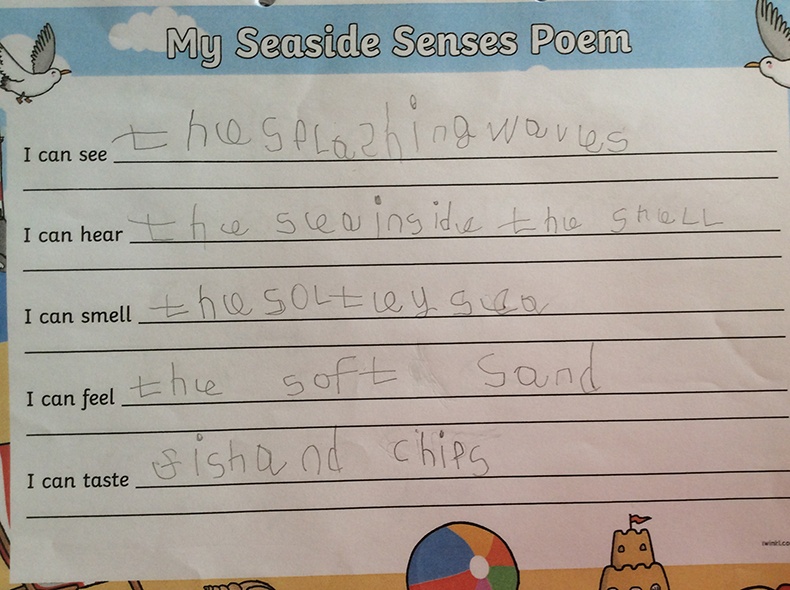 My Seaside Senses Poem
I can see the splashing waves
I can hear the sea inside the shell
I can smell the soltey sea
I can feel the soft sand
I can taste fish and chips